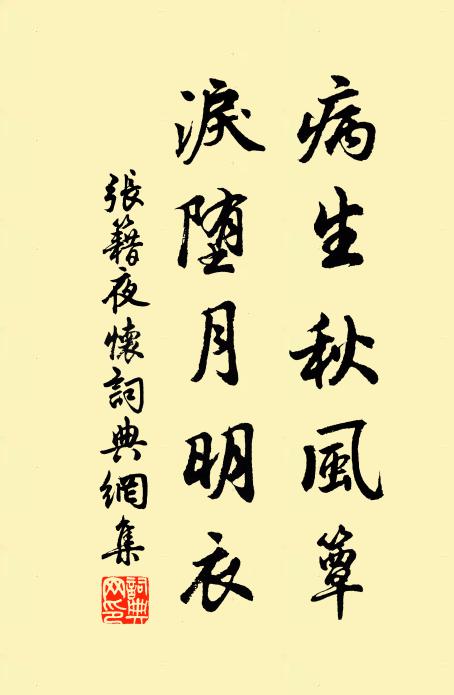 病生秋風簟
淚堕月明衣
張籍夜懷詞典網集
詞典網印